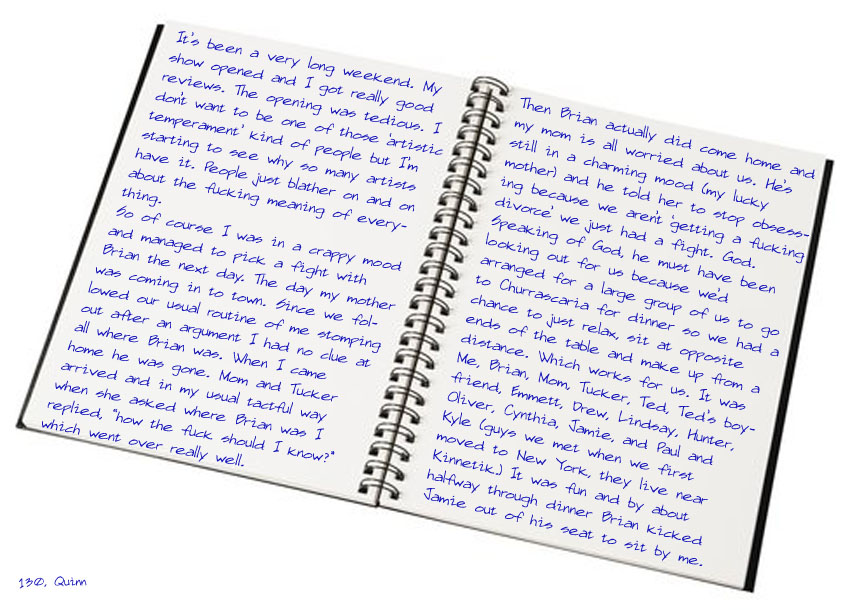 It's been a very long weekend. My
show opened and I got really good
reviews. The opening was tedious. I
don't want to be one of those 'artistic
temperament' kind of people but I'm
starting to see why so many artists
have it. People just blather on and on
about the fucking meaning of every-
thing.
So of course I was in a crappy mood
and managed to pick a fight with
Brian the next day. The day my mother
was coming in to town. Since we fol-
lowed our usual routine of me stomping
out after an argument I had no clue at
all where Brian was. When I came
home he was gone. Mom and Tucker
arrived and in my usual tactful way
when she asked where Brian was I
replied, "how the fuck should I know?"
which went over really well.
Then Brian actually did come home and
my mom is all worried about us. He's
still in a charming mood (my lucky
mother) and he told her to stop obsess-
ing because we aren't 'getting a fucking
divorce' we just had a fight. God.
Speaking of God, he must have been
looking out for us because we'd
arranged for a large group of us to go
to Churrascaria for dinner so we had a
chance to just relax, sit at opposite
ends of the table and make up from a
distance. Which works for us. It was
Me, Brian, Mom, Tucker, Ted, Ted's boy-
friend, Emmett, Drew, Lindsay, Hunter,
Oliver, Cynthia, Jamie, and Paul and
Kyle (guys we met when we first
moved to New York, they live near
Kinnetik.) It was fun and by about
halfway through dinner Brian kicked
Jamie out of his seat to sit by me.
130, Quinn